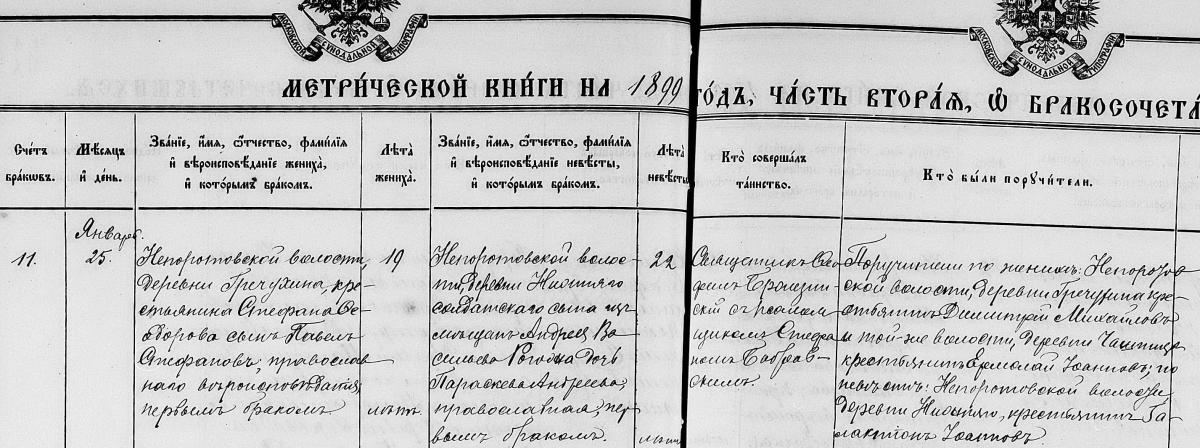 МОСКОВСКОЙ СѴНОДАЛЬНОЙ ТИПОГРАФІИ
МОСКОВСКОЙ СѴНОДАЛЬНОЙ ТИПОГРАФІИ
МЕТРИ́ЧЕСКОЙ КНИ́ГИ НА 1899
ГО́ДЪ, ЧА́СТЬ ВТОРА́Я, Ѽ БРАКОСОЧЕТА
Сче́тъ
бра́кѡвъ.
Мѣ́сяцъ
и҆ де́нь.
Зва́нїе, и҆́мя, ѻ҆́тчество, фами́лїя
и҆ вѣроисповѣ́данїе жениха̀,
и҆ кото́рымъ бра́комъ.
Лѣ́та
жениха̀.
Зва́нїе, и҆́мя, ѻ҆́тчество, фами́лїя
и҆ вѣроисповѣ́данїе невѣ́сты,
и҆ кото́рымъ бра́комъ.
Лѣ́та
невѣ́сты
Кто̀ соверша́лъ
та́инство.
Кто̀ бы́ли порꙋчи́тели.
11.
Январь
25.
Непоротовской волости,
деревни Гречухина, кре-
стьянина Стефана Ѳе-
дорова сынъ Павелъ
Стефановъ, православ
наго вѣроисповѣданія,
первымъ бракомъ
19
лѣтъ.
Непоротовской волос-
ти, деревни Нижняго
солдатскаго сына изъ
мѣщанъ Андрея Ва-
сильева Рогозка дочь
Параскева Андреева,
православная, пер-
вымъ бракомъ.
22
лѣтъ
Священникъ Ѳео
филъ
скій съ псалом
щикомъ Стефа
номъ Бобров-
скимъ.
Поручители по женихѣ: Непоротов
ской волости, деревни Гречухина кре-
стьянинъ Димитрій Михайловъ
и той-же волости, деревни
крестьянинъ Ермолай Іоанновъ; по
невѣстѣ: Непоротовской волости
деревни Нижняго, крестьянинъ Га-
лактіонъ Іоанновъ